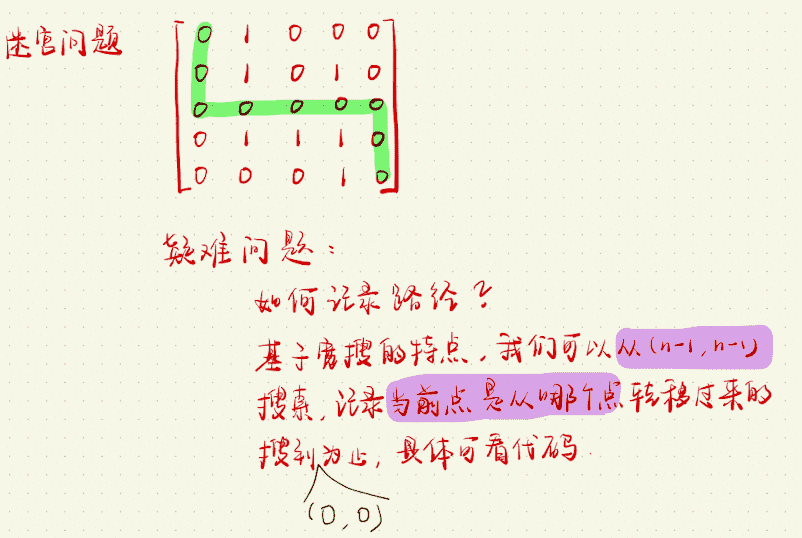 迷宫问题
0 1 0 0 0
0 1 0 1 0
0 0 0 0 0
0 1 1 1 0
0 0 0 1 0
疑难问题：
如何记录路径？
基于宽搜的特点，我们可以从(n-1,n-1)
搜索，记录当前点是从哪个点转移过来的
搜到为止，具体可看代码.
(0,0)